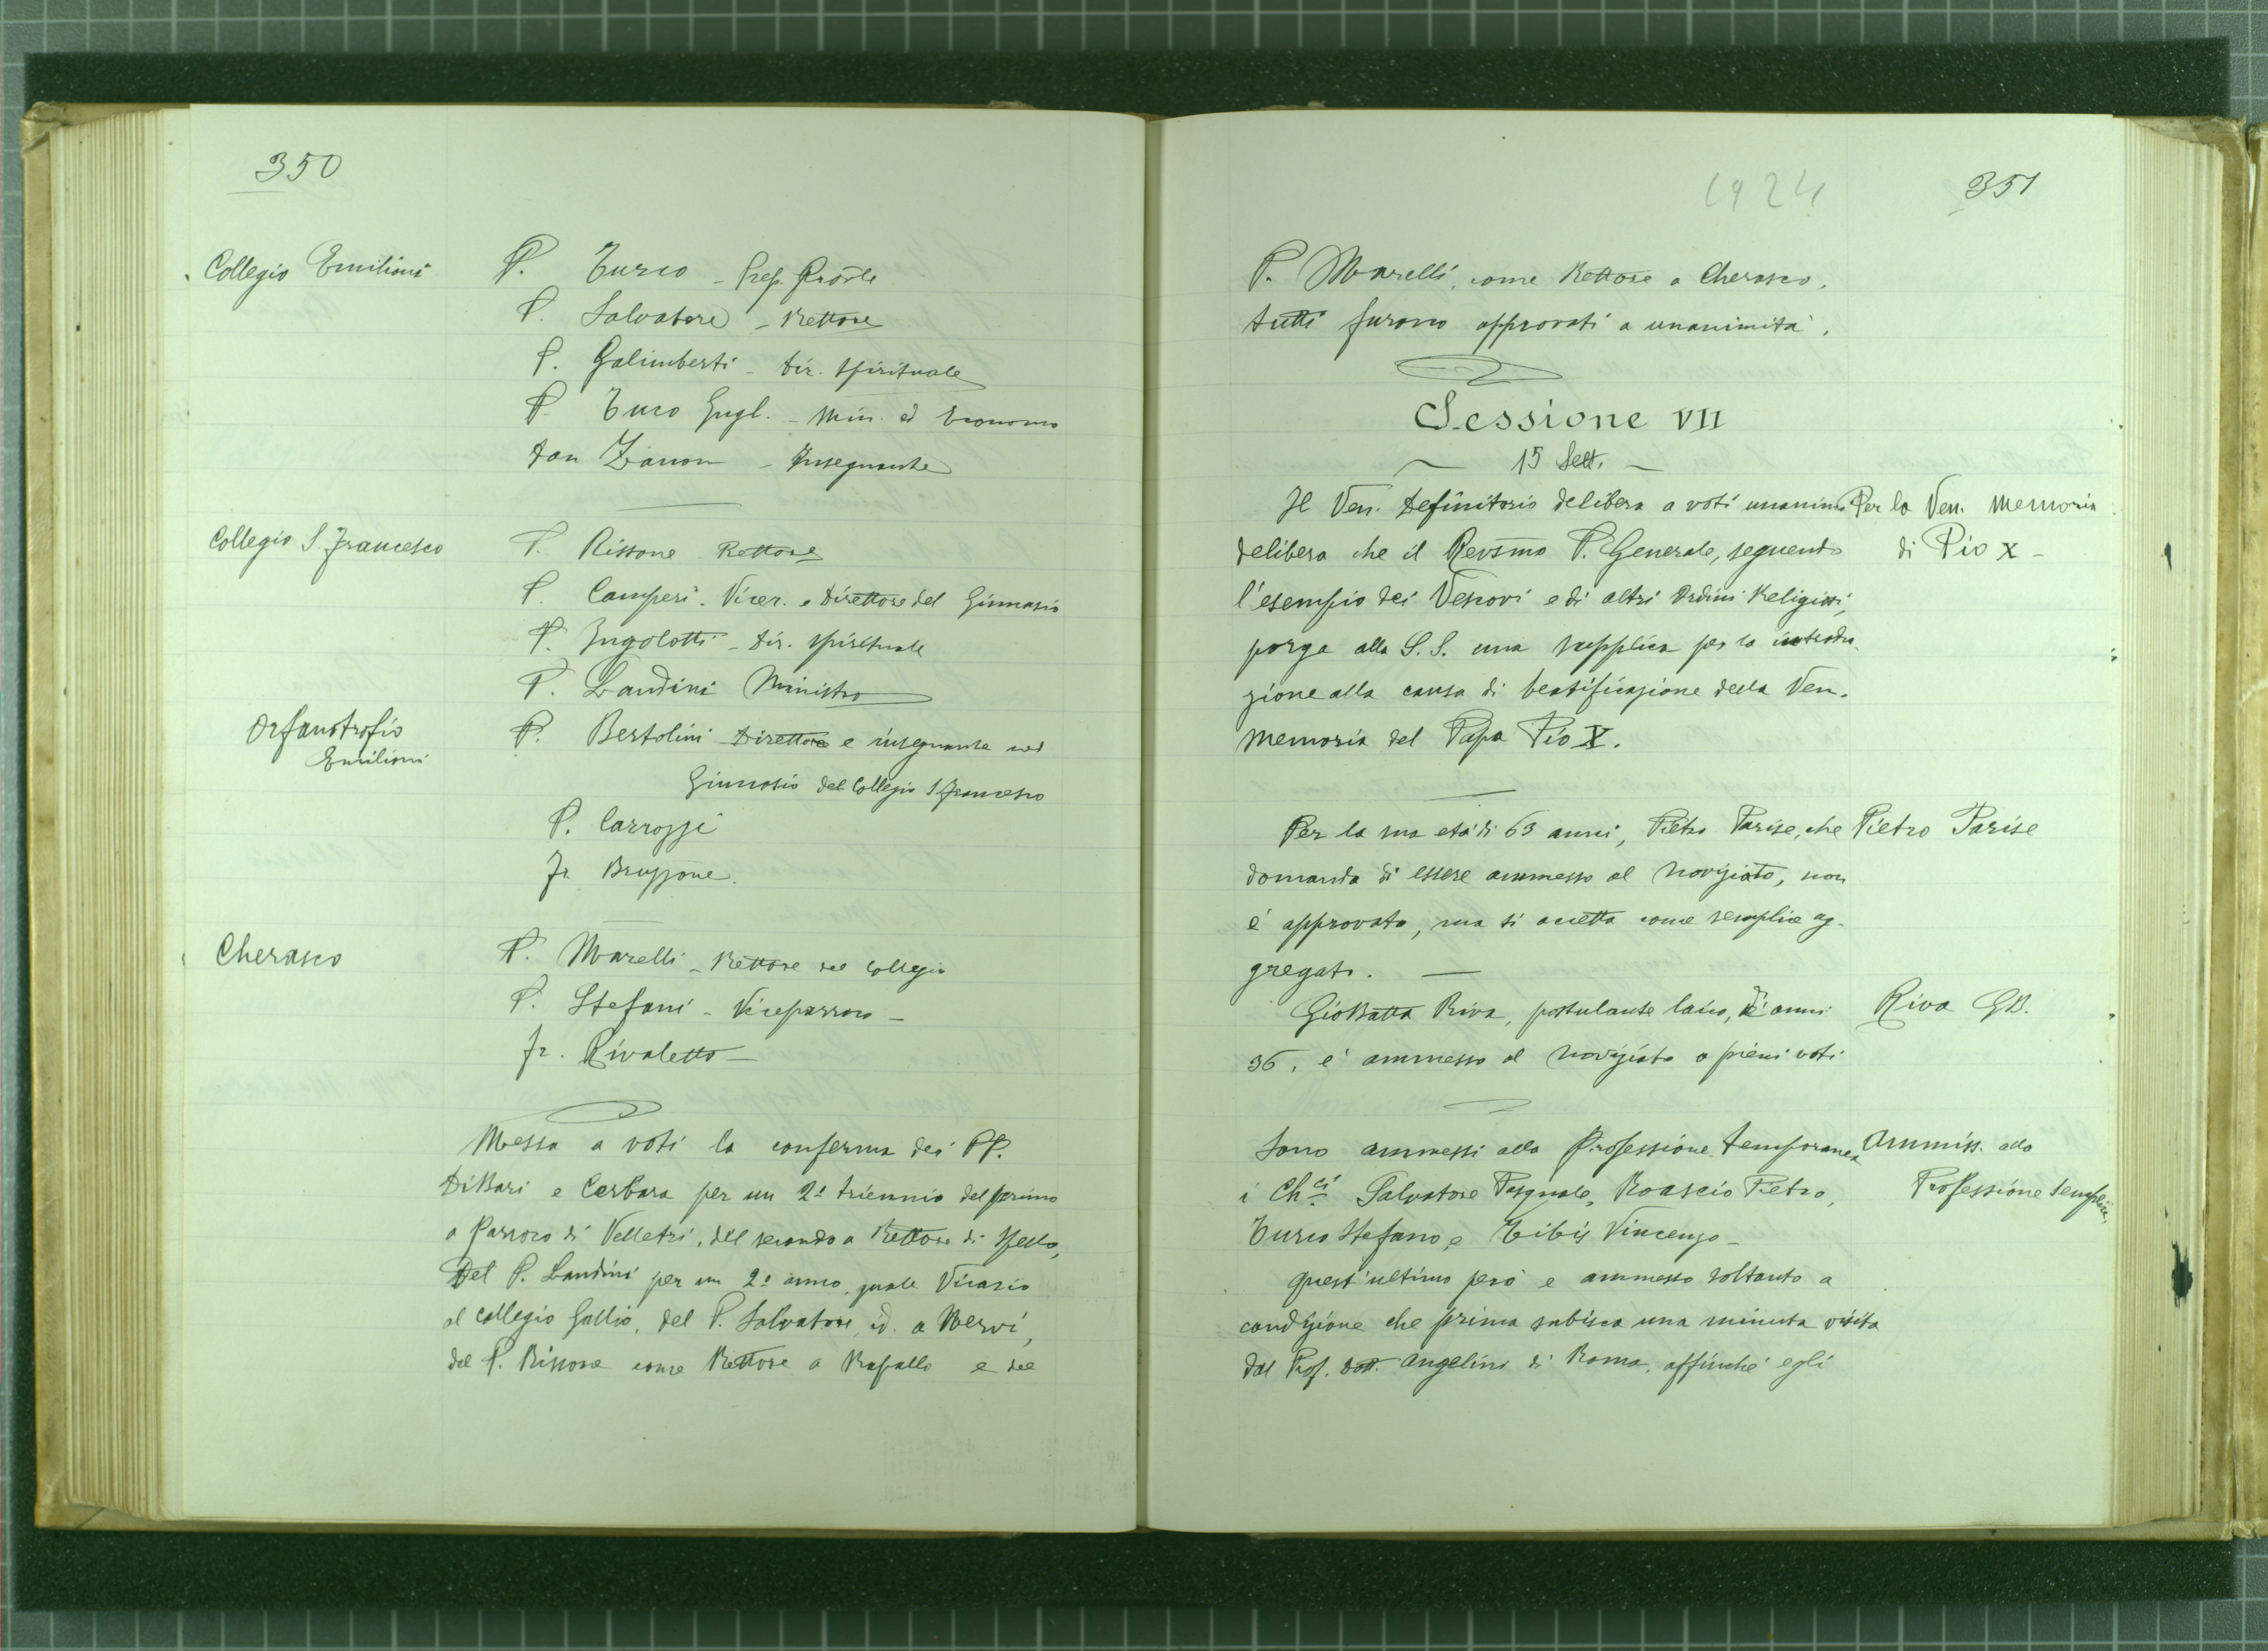 350
Collegio Emiliani
P. Turco - Prep. Pro̅vle
P. Salvatore - Rettore
P. Galimberti - Dir. Spirituale
P. Turco Gugl. - Min. ed Economo
Don Zanon - Insegnante
Collegio S. Francesco
P. Rissone - Rettore
P. Camperi. Vicer. e Direttore del Ginnasio
P. Ingolotti - Dir. Spirituale
P. Landini Ministro
Orfanotrofio
Emiliani
P. Bertolini Direttore e insegnante nel
Ginnasio del Collegio S. Francesco
P. Carrozzi
Fr. Bruzzone.
Cherasco
P. Marelli - Rettore del Collegio
P. Stefani - Viceparroco -
Fr. Rivaletto -
Messa a voti la conferma dei PP.
DiBari e Cerbara per un 2º triennio del primo
a Parroco di Velletri, del secondo a Rettore di Spello,
Del P. Landini per un 2º anno, quale Vicario
al Collegio Gallio, del P. Salvatore, id. a Nervi,
del P. Rissone come Rettore a Rapallo e del
1924
351
P. Marelli, come Rettore a Cherasco.
tutti furono approvati a unanimità.
Sessione VII
15 Sett.
Il Ven. Definitorio delibera a voti unanimi
Per la Ven. Memoria
di Pio X -
delibera che il Revsmo P. Generale, seguendo
l'esempio dei Vescovi e di altri Ordini Religiosi,
porga alla S. S. una supplica per la introdu-
zione alla causa di beatificazione della Ven.
Memoria del Papa Pio X.
Per la sua età di 63 anni, Pietro Parise, che
Pietro Parise
domanda di essere ammesso al Noviziato, non
è approvato, ma si accetta come semplice ag-
gregato. -
GioBatta Riva, postulante laico, di anni
Riva GB.
36, è ammesso al Noviziato a pieni voti
Sono ammessi alla Professione temporanea
Ammiss. alla
Professione semplice
i Ch.ci Salvatore Pasquale, Roascio Pietro,
Turco Stefano, e Tibis Vincenzo -
quest'ultimo però e ammesso soltanto a
condizione che prima subisca una minuta visita
dal Prof. Dott. Angelini di Roma, affinchè egli